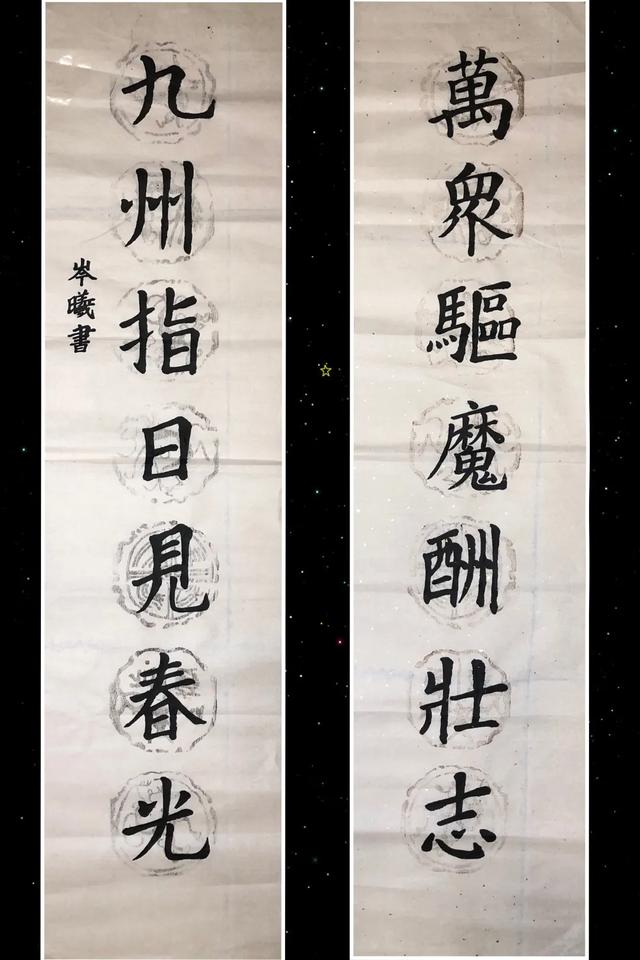 萬衆驅魔酬壯志
九州指日見春光
岑曦書